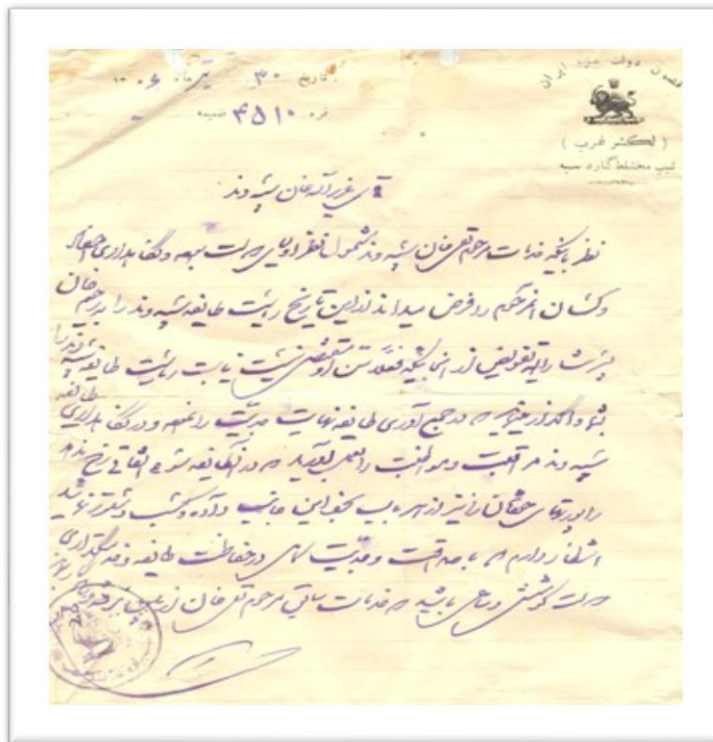 قشون دولت علیه ایران
(لشکر غرب)
تیپ مختلط گارد سپه
تاریخ ۳۰ تیر ماه ۱۳۰۶
نمره ۴۵۱۰ ضمیمه
آقای عزیزاله خان شپه وند
نظر باینکه خدمات مرحوم تقی خان شپه وند مشمول نظر اولیای دولت بوده و نگاهداری
و کسان آن مرحوم را فرض میداند از این تاریخ ریاست طایفه شپه وند را به رحیم خان
پسر شما تفویض از آنجائیکه فعلا سن او مقتضی نیست نیابت ریاست طایفه شپه وند را
بشما واگذار که در جمع آوری طایفه نهایت جدیت را نموده و در نگاهداری طایفه
شپه وند مراقبت و مواظبت را بعمل آورید که در آن طایفه سوء اتفاقی رخ ندهد
راپورتهای را نیز از هر باب به این جانب داده و کسب دستور نمائید
انتظار دارم که با صداقت و جدیت در حفاظت طایفه و خدمتگذاری
دولت کوشش و ساعی باشید که خدمات سابق مرحوم تقی خان از